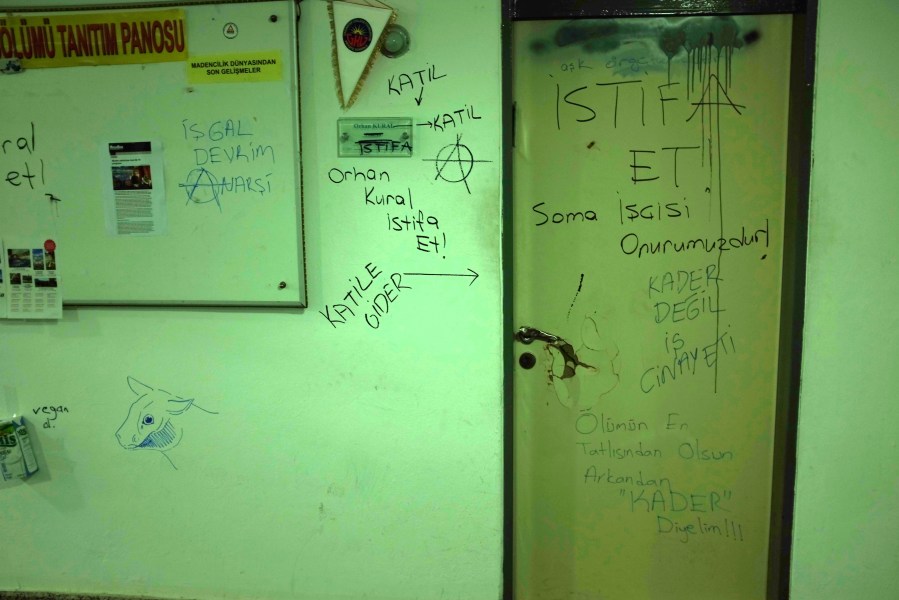 BÖLÜMÜ TANITIM PANOSU
MADENCİLİK DÜNYASINDAN
SON GELİŞMELER
ral
et!
İŞGAL
DEVRİM
ANARŞİ
KATİL
Orhan KURAL
İSTİFA
→KATİL
A
Orhan
Kural
istifa
Et!
KATİLE
GİDER
vegan
aşk
İSTİFA
ET
Soma İŞÇİSİ
Onurumuzdur!
KADER
DEĞİL
İŞ
CİNAYETİ
Ölümün En
Tatlısından Olsun
Arkandan
"KADER"
Diyelim!!!